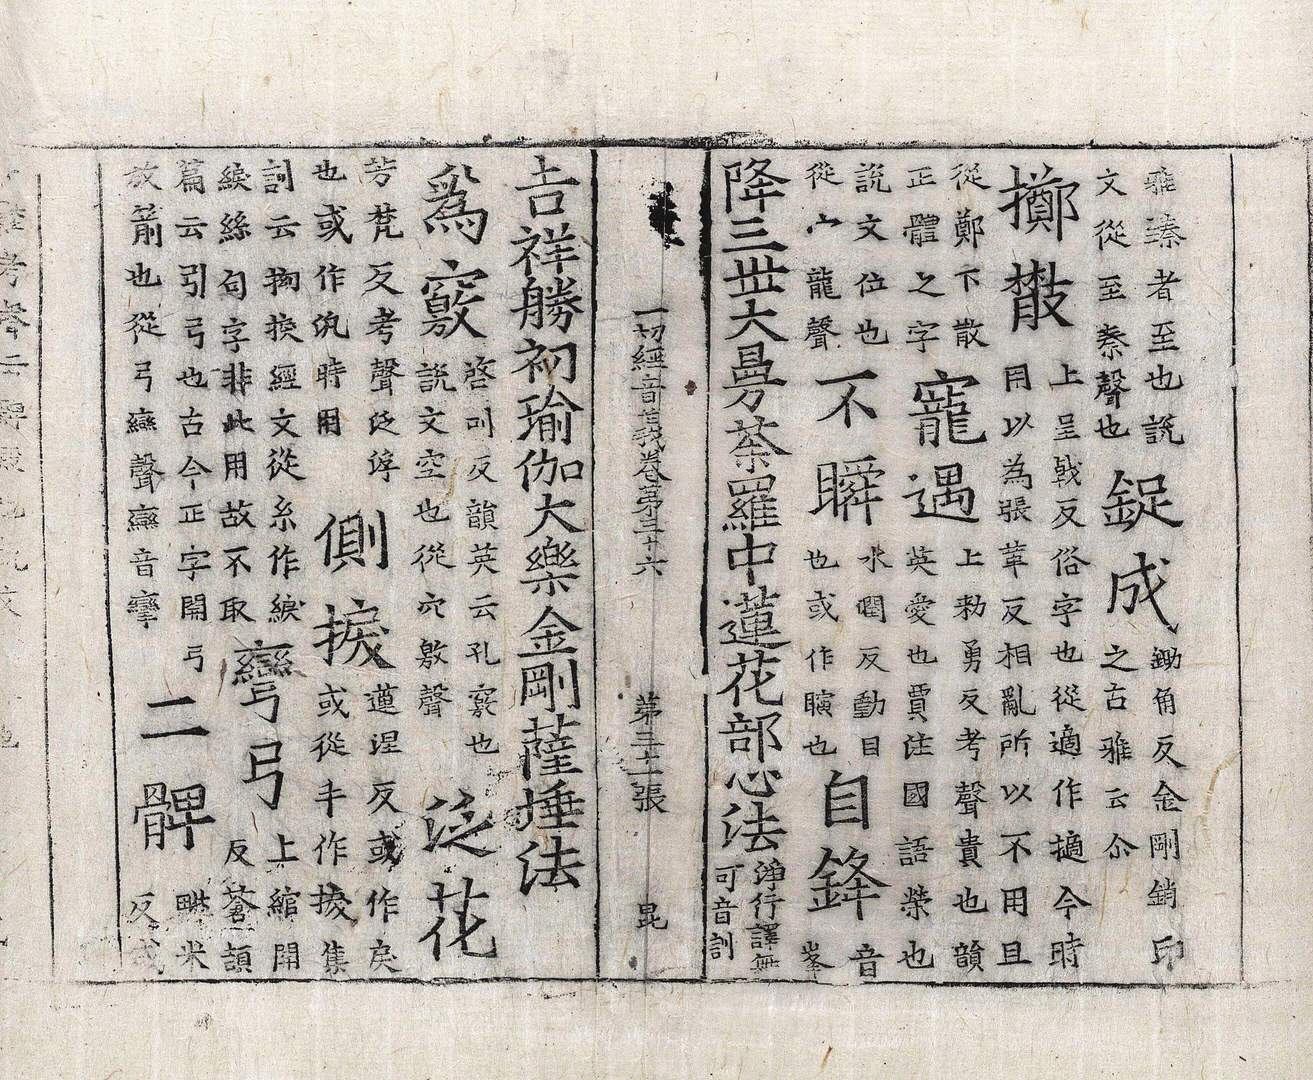 雅臻者至也說
文從至秦聲也
鋜成
鋤角反金剛銷印
之古雅云尒
擲㪚
上呈戟反俗字也從適作擿今時
用以為張葦反相亂所以不用且
從鄭下散
正體之字
寵遇
上勑勇反考聲貴也韻
英愛也賈注國語榮也
說文位也
從宀龍聲
不瞬
水閏反動目
也或作瞚也
自鋒
音
峯
降三丗大曼荼羅中蓮花部心法
澓行譯無
可音訓
一切經音義卷第三十六
第三十二張
昆
吉祥勝初瑜伽大樂金剛薩埵法
為竅
啓叫反韻英云孔竅也
說文空也從穴敫聲
泛花
芳梵反考聲泛浮
也或作汎時用
側捩
蓮涅反或作戾
或從手作捩集
訓云拗捩經文從糸作綟
綟絲勾字非此用故不取
彎弓
上綰開
反蒼頡
篇云引弓也古今正字開弓
放箭也從弓䜌聲䜌音攣
二髀
毗米
反或